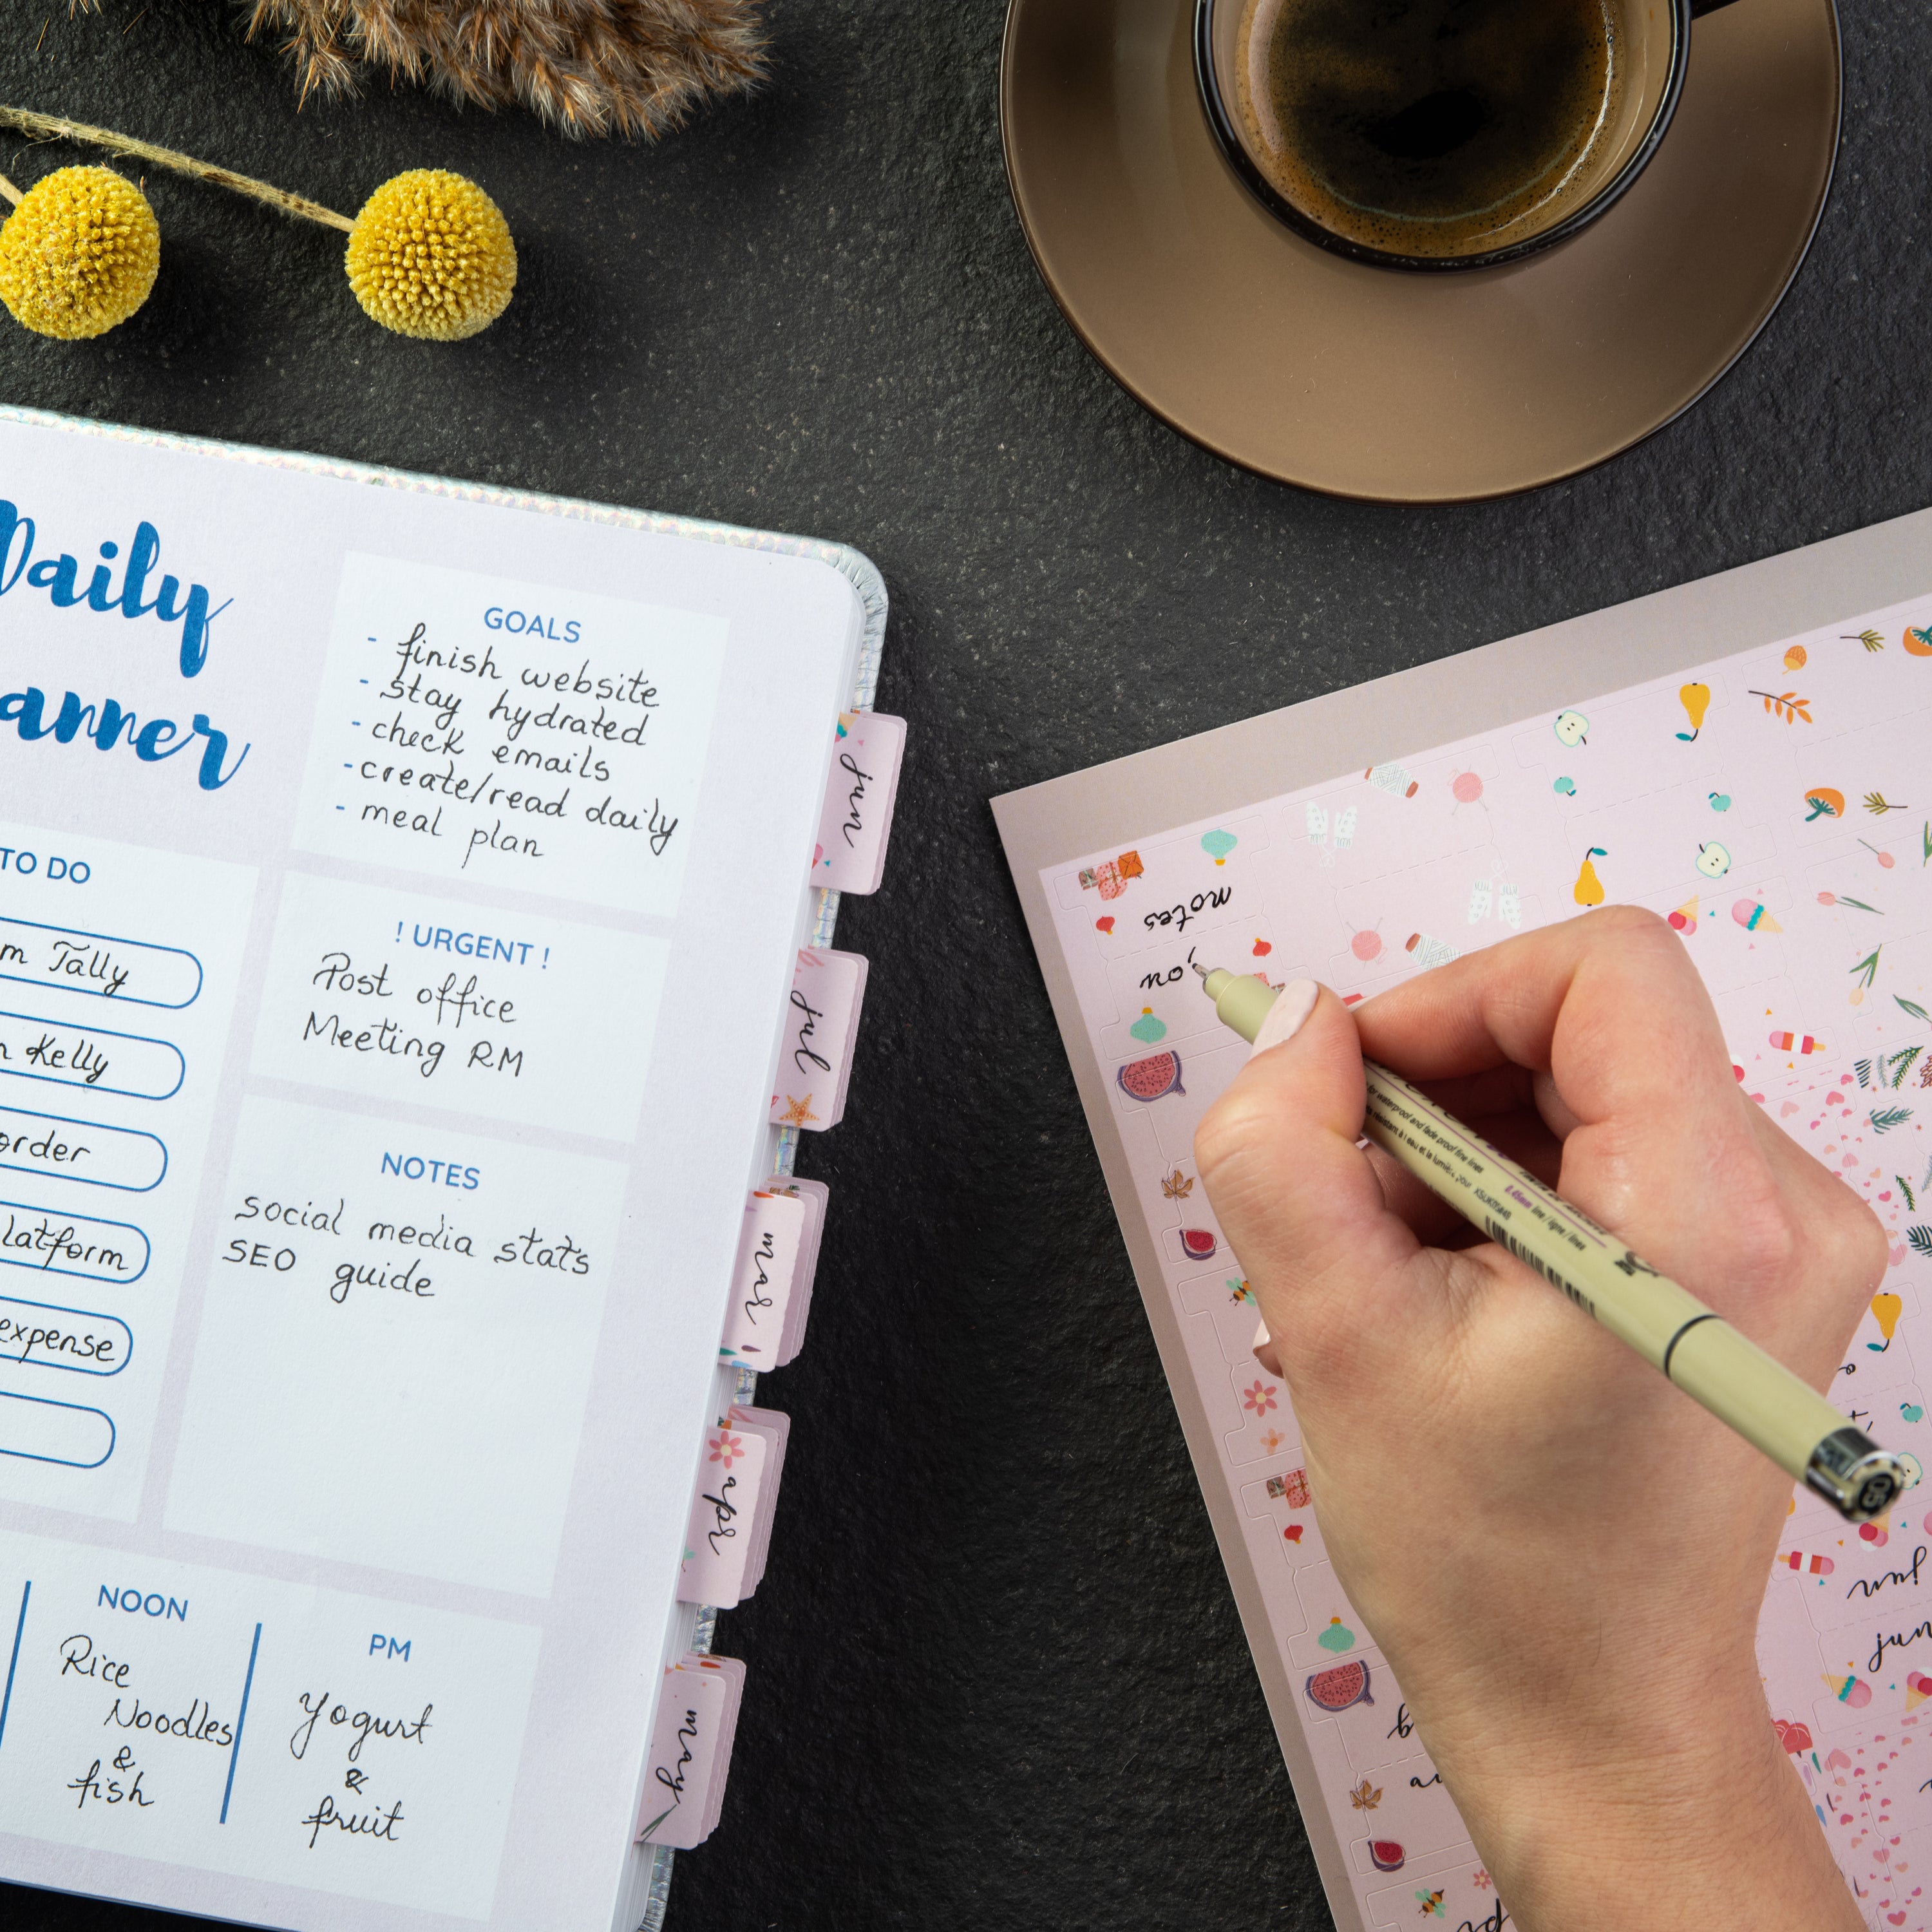 Daily
GOALS
- finish website
- stay hydrated
- check emails
- create/read daily
- meal plan
TO DO
Tally
Kelly
order
expense
! URGENT !
Post office
Meeting RM
NOTES
social media stats
SEO guide
NOON
Rice
Noodles
&
fish
PM
Yogurt
&
fruit
jun
jul
mar
apr
may
notes
for waterproof and fade proof fine lines
05
jun
jun